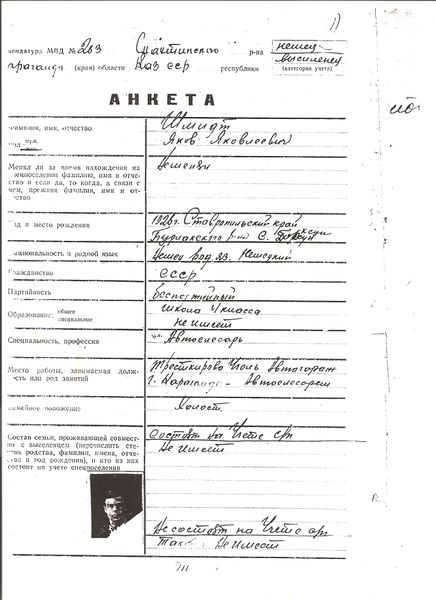 11)
мендатура МВД №203 Сталинского р-на немец-
араганда (край) области Каз ССР республики выселенец
(категория учета)
АНКЕТА
фамилия, имя, отчество Шмидт
муж. Яков Яковлевич
Менял ли за время нахождения на
спецпоселении фамилию, имя и отче-
ство и если да, то когда, в связи с
чем, прежняя фамилия, имя и от-
чество
год и место рождения 1928г. Ставропольский край
р-на с.
национальность и родной язык немец род. яз. немецкий
гражданство СССР
Партийность беспартийный
Образование: общее школа 4 класса
специальное не имеет
Специальность, профессия Автослесарь
Место работы, занимаемая долж-
ность или род занятий
г. Караганда - Автослесарем
семейное положение Холост.
Состав семьи, проживающей совмест-
но с выселенцем (перечислить сте-
пень родства, фамилии, имена, отче-
ства и год рождения), и кто из них
состоит на учете спецпоселения
состоят на учете
Не имеет
Не состоят на учете
Не имеет